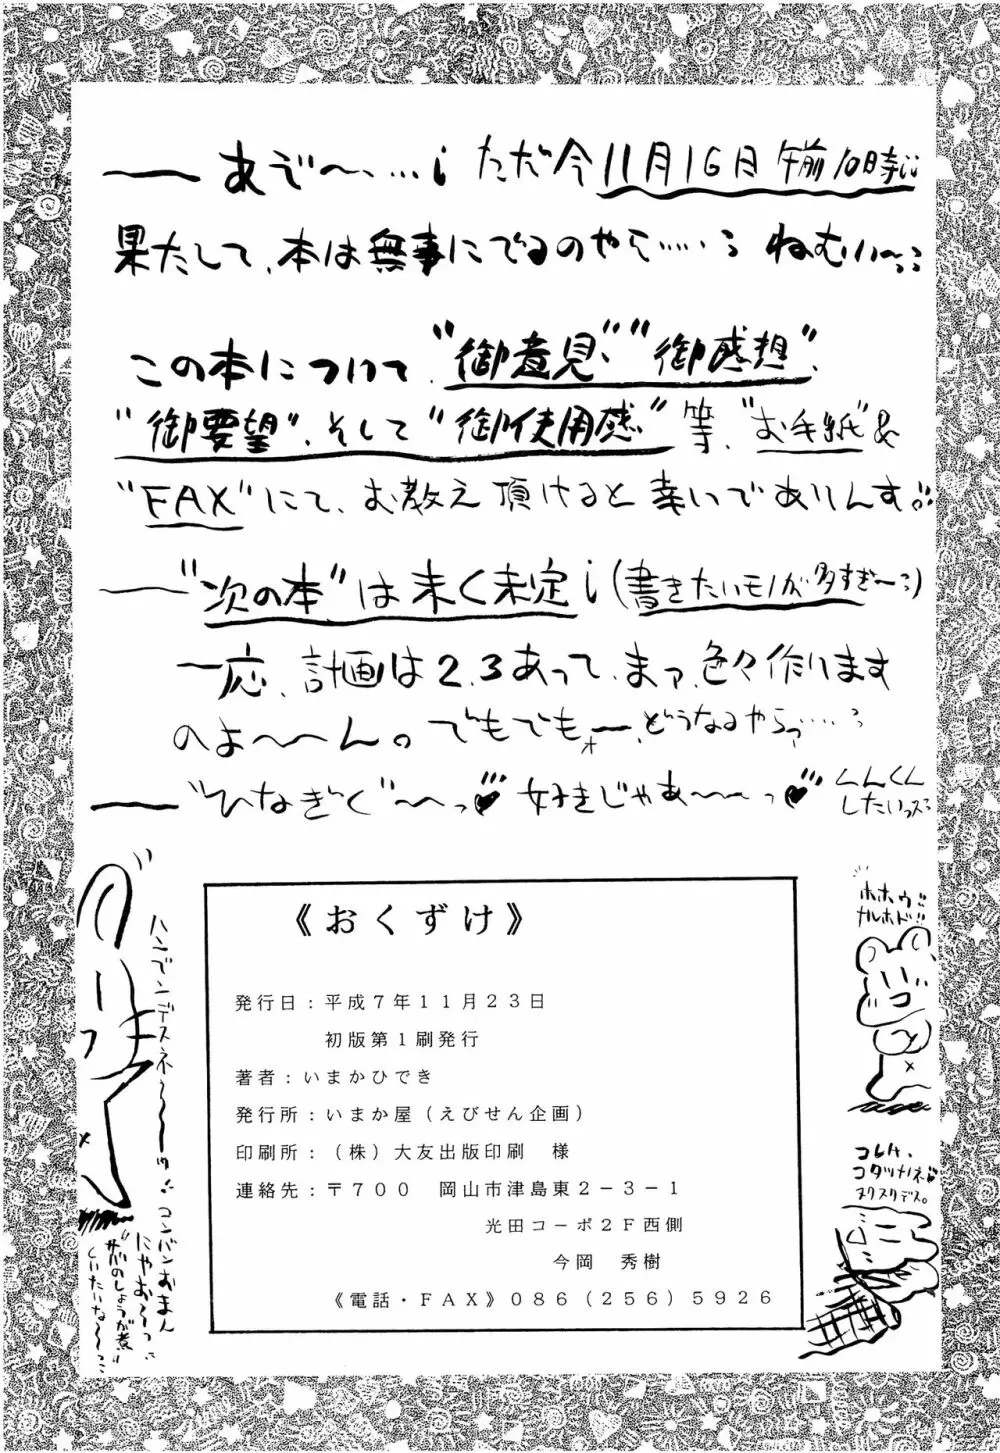 あぞ〜、…! ただ今11月16日午前10時!!
果たして、本は無事にでるのやら……? ねむい〜
この本について、"御意見""御感想"、
"御要望"、そして"御使用感"等、"お手紙"&
"FAX"にて、お教え頂けると幸いでありんす。
"次の本"は未〃未定!(書きたいモノが多すぎ〜)
一応、計画は2、3あって、まァ、色々作ります
のよ〜〜ん。でもでもォー、どうなるやらっ……?
"ひなぎく"〜っ♥ 好きじゃあ〜〜っ♥ くんくん
したいっス
《おくずけ》
発行日：平成7年11月23日
初版第1刷発行
著者：いまかひでき
発行所：いまか屋（えびせん企画）
印刷所：（株）大友出版印刷 様
連絡先：〒700 岡山市津島東2-3-1
光田コーポ2F西側
今岡 秀樹
《電話・FAX》086（256）5926
ホホゥ!!
ナルホド!!
コレハ、
コタツナノネ♥
ヌクヌクデス。
コンバンおまん
にゃお〜っ
"サバのしょうが煮"